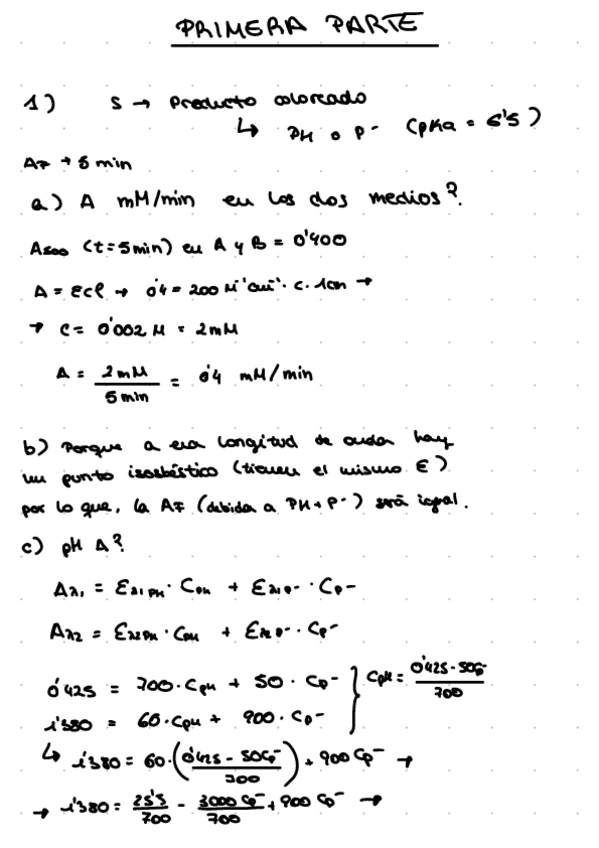 PRIMERA PARTE
1) S → Producto coloreado
↳ PH o P⁻ (pKa = 6'5)
A₇ → 5 min
a) A mM/min en los dos medios?
A₅₀₀ (t=5min) en A y B = 0'400
A = εcl → 0'4 = 200 M⁻¹cm⁻¹ · c · 1cm →
→ c = 0'002 M = 2mM
A = 2mM / 5 min = 0'4 mM/min
b) Porque a esa longitud de onda hay
un punto isosbéstico (tienen el mismo ε)
por lo que, la A₇ (debida a PH + P⁻) será igual.
c) pH A?
Aλ₁ = ελ₁PH · CPH + ελ₁P⁻ · CP⁻
Aλ₂ = ελ₂PH · CPH + ελ₂P⁻ · CP⁻
0'425 = 700 · CPH + 50 · CP⁻
1'380 = 60 · CPH + 900 · CP⁻
} CPH = (0'425 - 50CP⁻) / 700
↳ 1'380 = 60 · ((0'425 - 50CP⁻) / 700) + 900 CP⁻ →
→ 1'380 = 25'5/700 - 3000 CP⁻/700 + 900 CP⁻ →